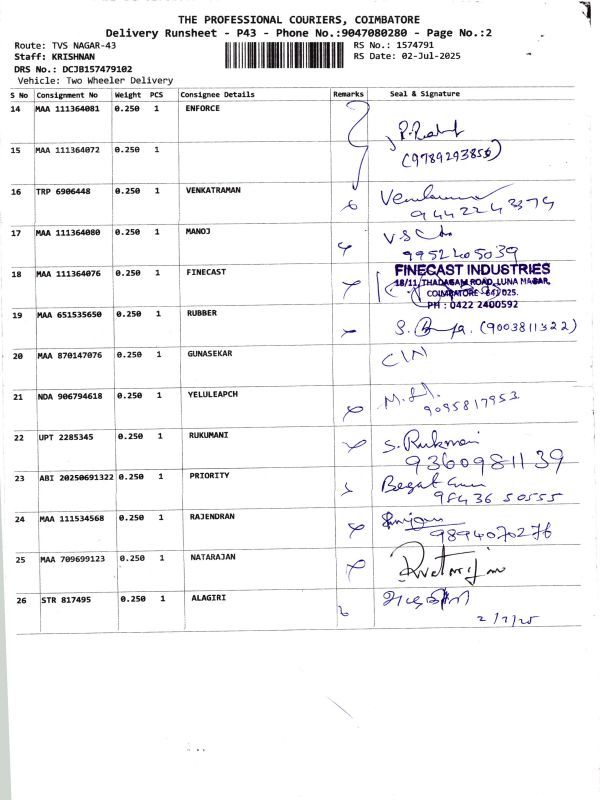 THE PROFESSIONAL COURIERS, COIMBATORE
Delivery Runsheet - P43 - Phone No.:9047080280 - Page No.:2
Route: TVS NAGAR-43 RS No.: 1574791
Staff: KRISHNAN RS Date: 02-Jul-2025
DRS No.: DCJB157479102
Vehicle: Two Wheeler Delivery
S No Consignment No Weight PCS Consignee Details Remarks Seal & Signature
14 MAA 111364081 0.250 1 ENFORCE
15 MAA 111364072 0.250 1
16 TRP 6906448 0.250 1 VENKATRAMAN
9442243379
17 MAA 111364080 0.250 1 MANOJ
9952405039
18 MAA 111364076 0.250 1 FINECAST
FINECAST INDUSTRIES
18/11, THADAGAM ROAD, LUNA NAGAR,
COIMBATORE - 641 025.
PH : 0422 2400592
19 MAA 651535650 0.250 1 RUBBER
(9003811322)
20 MAA 870147076 0.250 1 GUNASEKAR
21 NDA 906794618 0.250 1 YELULEAPCH
9095817953
22 UPT 2285345 0.250 1 RUKUMANI S. Rukmani
9360981139
23 ABI 20250691322 0.250 1 PRIORITY
98436 50555
24 MAA 111534568 0.250 1 RAJENDRAN
9894070276
25 MAA 709699123 0.250 1 NATARAJAN
26 STR 817495 0.250 1 ALAGIRI
2/7/25